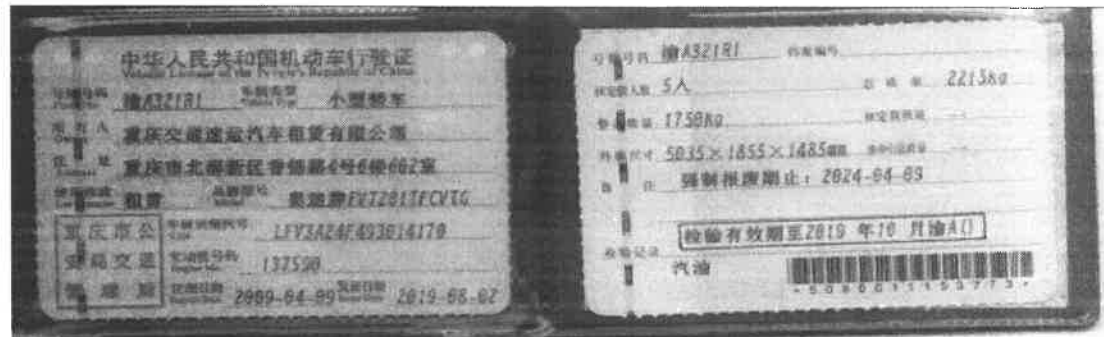 中华人民共和国机动车行驶证
Vehicle License of the People's Republic of China
号牌号码 渝A321R1 车辆类型 小型轿车
所有人 重庆交通速运汽车租赁有限公司
住址 重庆市北部新区
使用性质 租赁 品牌型号
重庆市公
安局交通
管理局
车辆识别代号 LFV3A24F493014170
发动机号码 137590
注册日期 2009-04-09 发证日期 2019-08-02
号牌号码 渝A321R1 档案编号
核定载人数 5人 总质量 2215kg
整备质量 1750kg 核定载质量 --
外廓尺寸 5035×1855×1485mm 准牵引总质量 --
备注 强制报废期止：2024-04-09
检验记录 检验有效期至2019 年10 月渝A()
汽油